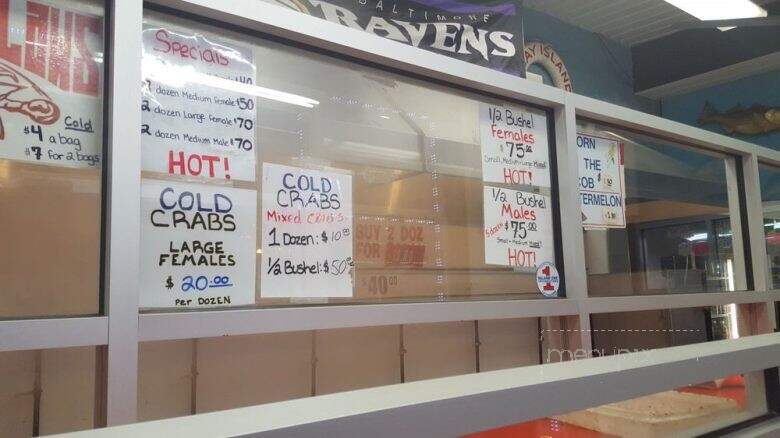 BALTIMORE
RAVENS
Cold
$4 a bag
$7 for 2 bags
Specials
$40
dozen Medium Female $50
2 dozen Large Female $70
2 dozen Medium Male $70
HOT!
COLD
CRABS
LARGE
FEMALES
$20.00
PER DOZEN
COLD
CRABS
Mixed CRABS
1 Dozen: $10.00
1/2 Bushel: $50.00
BUY 2 DOZ
FOR
$40.00
1/2 Bushel
Females
$75.00
Small, Medium, Large Mixed
HOT!
1/2 Bushel
Males
5 dozen $75.00
Small + Medium Mixed
HOT!
1
ORN
THE
OB
TERMELON
AY ISLAND